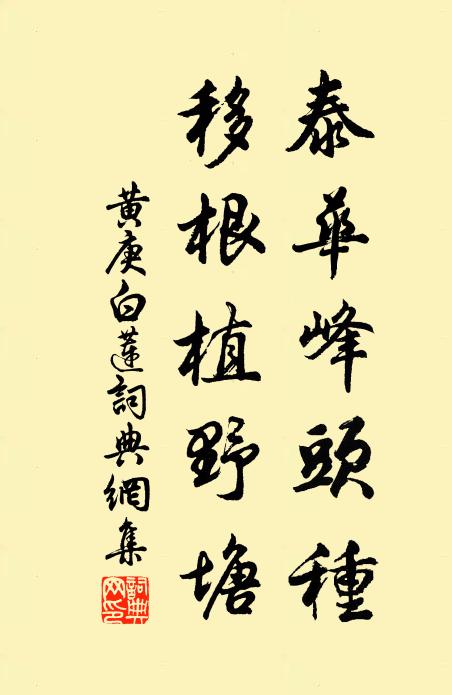 泰華峰頭種
移根植野塘
黃庚白蓮詞典網集
詞典网印